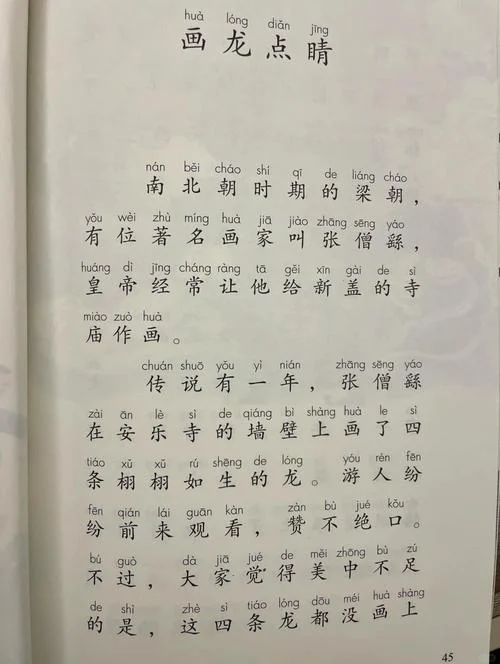 huà lóng diǎn jīng
画龙点睛
nán běi cháo shí qī de liáng cháo
南北朝时期的梁朝，
yǒu wèi zhù míng huà jiā jiào zhāng sēng yáo
有位著名画家叫张僧繇，
huáng dì jīng cháng ràng tā gěi xīn gài de sì
皇帝经常让他给新盖的寺
miào zuò huà
庙作画。
chuán shuō yǒu yì nián zhāng sēng yáo
传说有一年，张僧繇
zài ān lè sì de qiáng bì shàng huà le sì
在安乐寺的墙壁上画了四
tiáo xǔ xǔ rú shēng de lóng yóu rén fēn
条栩栩如生的龙。游人纷
fēn qián lái guān kàn zàn bù jué kǒu
纷前来观看，赞不绝口。
bú guò dà jiā jué de měi zhōng bù zú
不过，大家觉得美中不足
de shì zhè sì tiáo lóng dōu méi huà shàng
的是，这四条龙都没画上
45